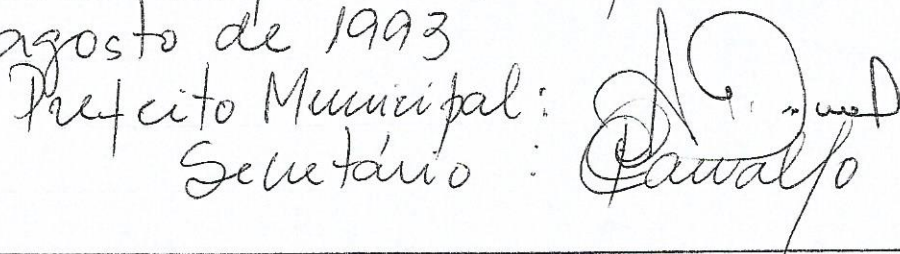 agosto de 1993
Prefeito Municipal:
Secretário : Carvalho